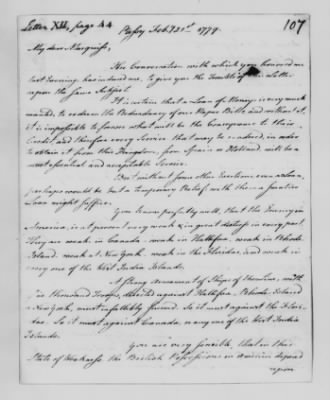 Letter XLII, page 44
107
Passy Feb. 21st 1779.
My dear Marquiss,
The Conversation with which you honoured me
last Evening has induced me, to give you the Trouble of this Letter
upon the same Subject.
It is certain that a Loan of Money is very much
wanted, to redeem the Redundancy of our Paper Bills and without it,
it is impossible to foresee what will be the Consequence to their
Credit, and therefore every Service that may be rendered, in order
to obtain it from this Kingdom, from Spain or Holland will be a
most essential and acceptable Service.
But without some other Exertions, even a Loan,
perhaps would be but a temporary Relief, with them a smaller
Loan might suffice.
You know perfectly well, that the Enemy in
America, are at present very weak & in great distress in every part.
They are weak in Canada. weak in Hallifax, weak in Rhode
Island. weak at New York. weak in the Floridas and weak in
every one of the West India Islands.
A strong Armament of Ships of the Line, with
five thousand Troops, directed against Hallifax, Rhode Island
or New York, must infallibly succeed. So it must against the Flori-
das. So it must against Canada, or any one of the West India
Islands.
You are very sensible, that in this
State of the the British Possessions in America depend
upon